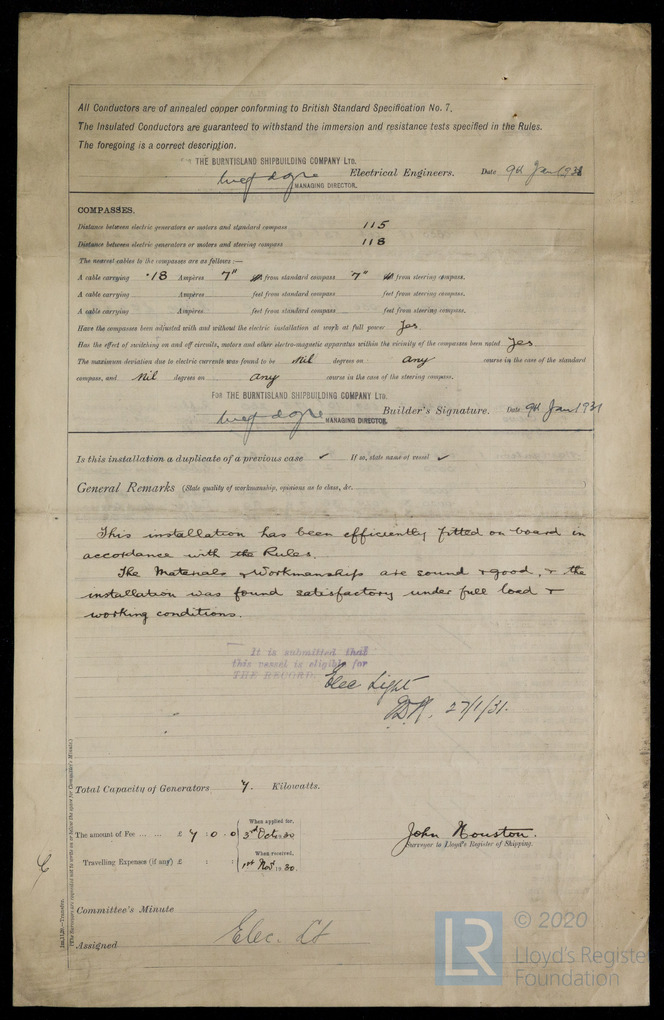 All Conductors are of annealed copper conforming to British Standard Specification No. 7.
The Insulated Conductors are guaranteed to withstand the immersion and resistance tests specified in the Rules.
The foregoing is a correct description.
For THE BURNTISLAND SHIPBUILDING COMPANY LTD.
Electrical Engineers. Date 9th Jan 1931
MANAGING DIRECTOR.
COMPASSES.
Distance between electric generators or motors and standard compass 115
Distance between electric generators or motors and steering compass 118
The nearest cables to the compasses are as follows:—
A cable carrying ·18 Ampères 7" from standard compass 7" from steering compass.
A cable carrying Ampères feet from standard compass feet from steering compass.
A cable carrying Ampères feet from standard compass feet from steering compass.
Have the compasses been adjusted with and without the electric installation at work at full power Yes
Has the effect of switching on and off circuits, motors and other electro-magnetic apparatus within the vicinity of the compasses been noted Yes
The maximum deviation due to electric currents was found to be Nil degrees on any course in the case of the standard
compass, and Nil degrees on any course in the case of the steering compass.
For THE BURNTISLAND SHIPBUILDING COMPANY LTD.
Builder's Signature. Date 9th Jan 1931
MANAGING DIRECTOR.
Is this installation a duplicate of a previous case ✓ If so, state name of vessel ✓
General Remarks (State quality of workmanship, opinions as to class, &c. )
This installation has been efficiently fitted on board in
accordance with the Rules.
The Materials & Workmanship are sound & good, & the
installation was found satisfactory under full load &
working conditions.
It is submitted that
this vessel is eligible for
THE RECORD. Elec Light
27/1/31.
Total Capacity of Generators 7. Kilowatts.
The amount of Fee ... ... £ 7 : 0 : 0 When applied for, 3rd Oct 1930
Travelling Expenses (if any) £ : : When received, 1st Nov 1930.
John Houston.
Surveyor to Lloyd's Register of Shipping.
Committee's Minute
Assigned Elec. Lt
(The Surveyors are requested not to write on or below the space for Committee's Minute.)
© 2020
LR
Lloyd's Register
Foundation